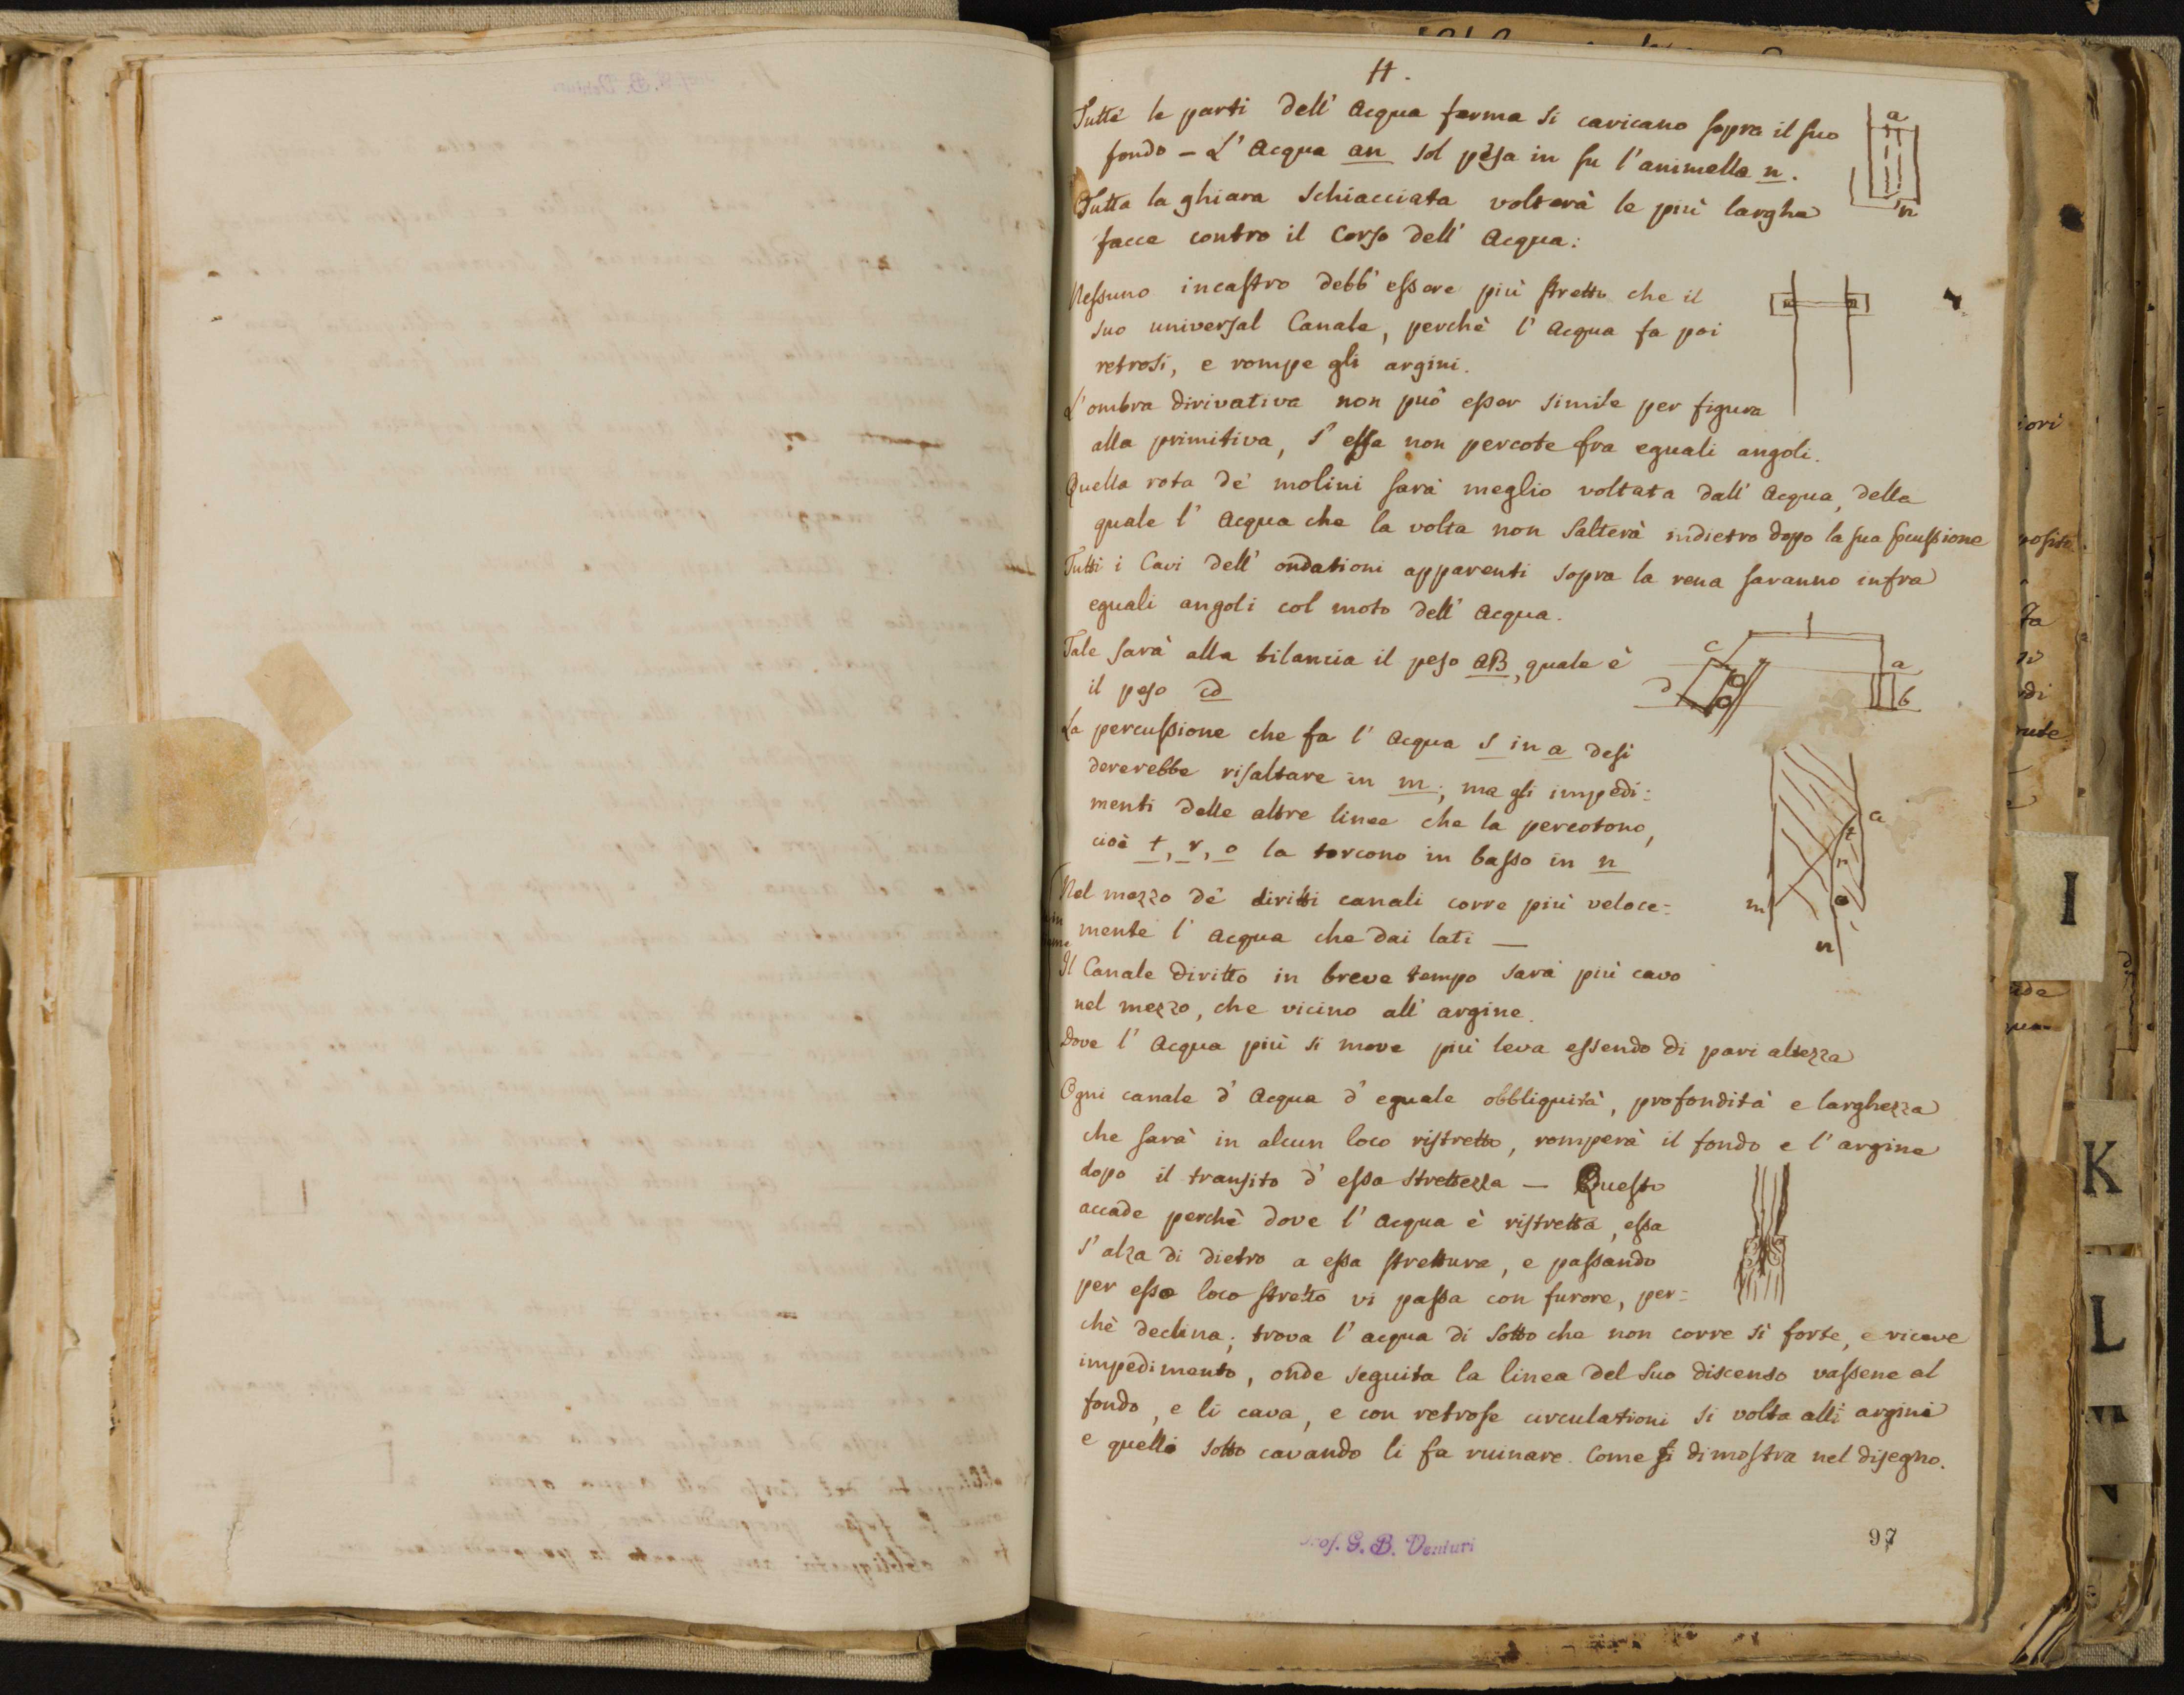 H.
Tutte le parti dell' Acqua ferma si caricano sopra il suo
fondo – L' Acqua an sol pesa in su l'animella n.
Tutta la ghiara schiacciata volterà le più larghe
facce contro il Corso dell' Acqua:
Nessuno incastro debb' essere più stretto che il
suo universal Canale, perchè l' Acqua fa poi
retrosi, e rompe gli argini.
L'ombra dirivativa non può esser simile per figura
alla primitiva, s' essa non percote fra eguali angoli.
Quella rota de' molini sarà meglio voltata dall' Acqua, della
quale l' Acqua che la volta non salterà indietro dopo la sua
Tutti i Cavi dell' ondationi apparenti sopra la rena saranno infra
eguali angoli col moto dell' Acqua.
Tale sarà alla bilancia il peso AB, quale è
il peso cd
La percussione che fa l' Acqua s in a desi
dererebbe risaltare in m; ma gli impedi=
menti delle altre linee che la percotono,
cioè t, r, o la torcono in basso in n
Nel mezzo de' diritti canali corre più veloce=
mente l' Acqua che dai lati —
Il Canale diritto in breve tempo sarà più cavo
nel mezzo, che vicino all' argine.
Dove l' Acqua più si move più leva essendo di pari altezza
Ogni canale d' Acqua d' eguale obbliquità, profondità e larghezza
che sarà in alcun loco ristretto, romperà il fondo e l' argine
dopo il transito d' essa strettezza — Questo
accade perchè dove l' Acqua è ristretta, essa
s' alza di dietro a essa strettura, e passando
per esso loco stretto vi passa con furore, per=
chè declina; trova l' acqua di sotto che non corre sì forte, e riceve
impedimento, onde seguita la linea del suo discenso vassene al
fondo, e li cava, e con retrose circulationi si volta alli argini
e quelli sotto cavando li fa ruinare. Come si dimostra nel disegno.
a
n
c
d
a
b
a
t
r
o
m
n
Prof. G. B. Venturi
97
I
K
L